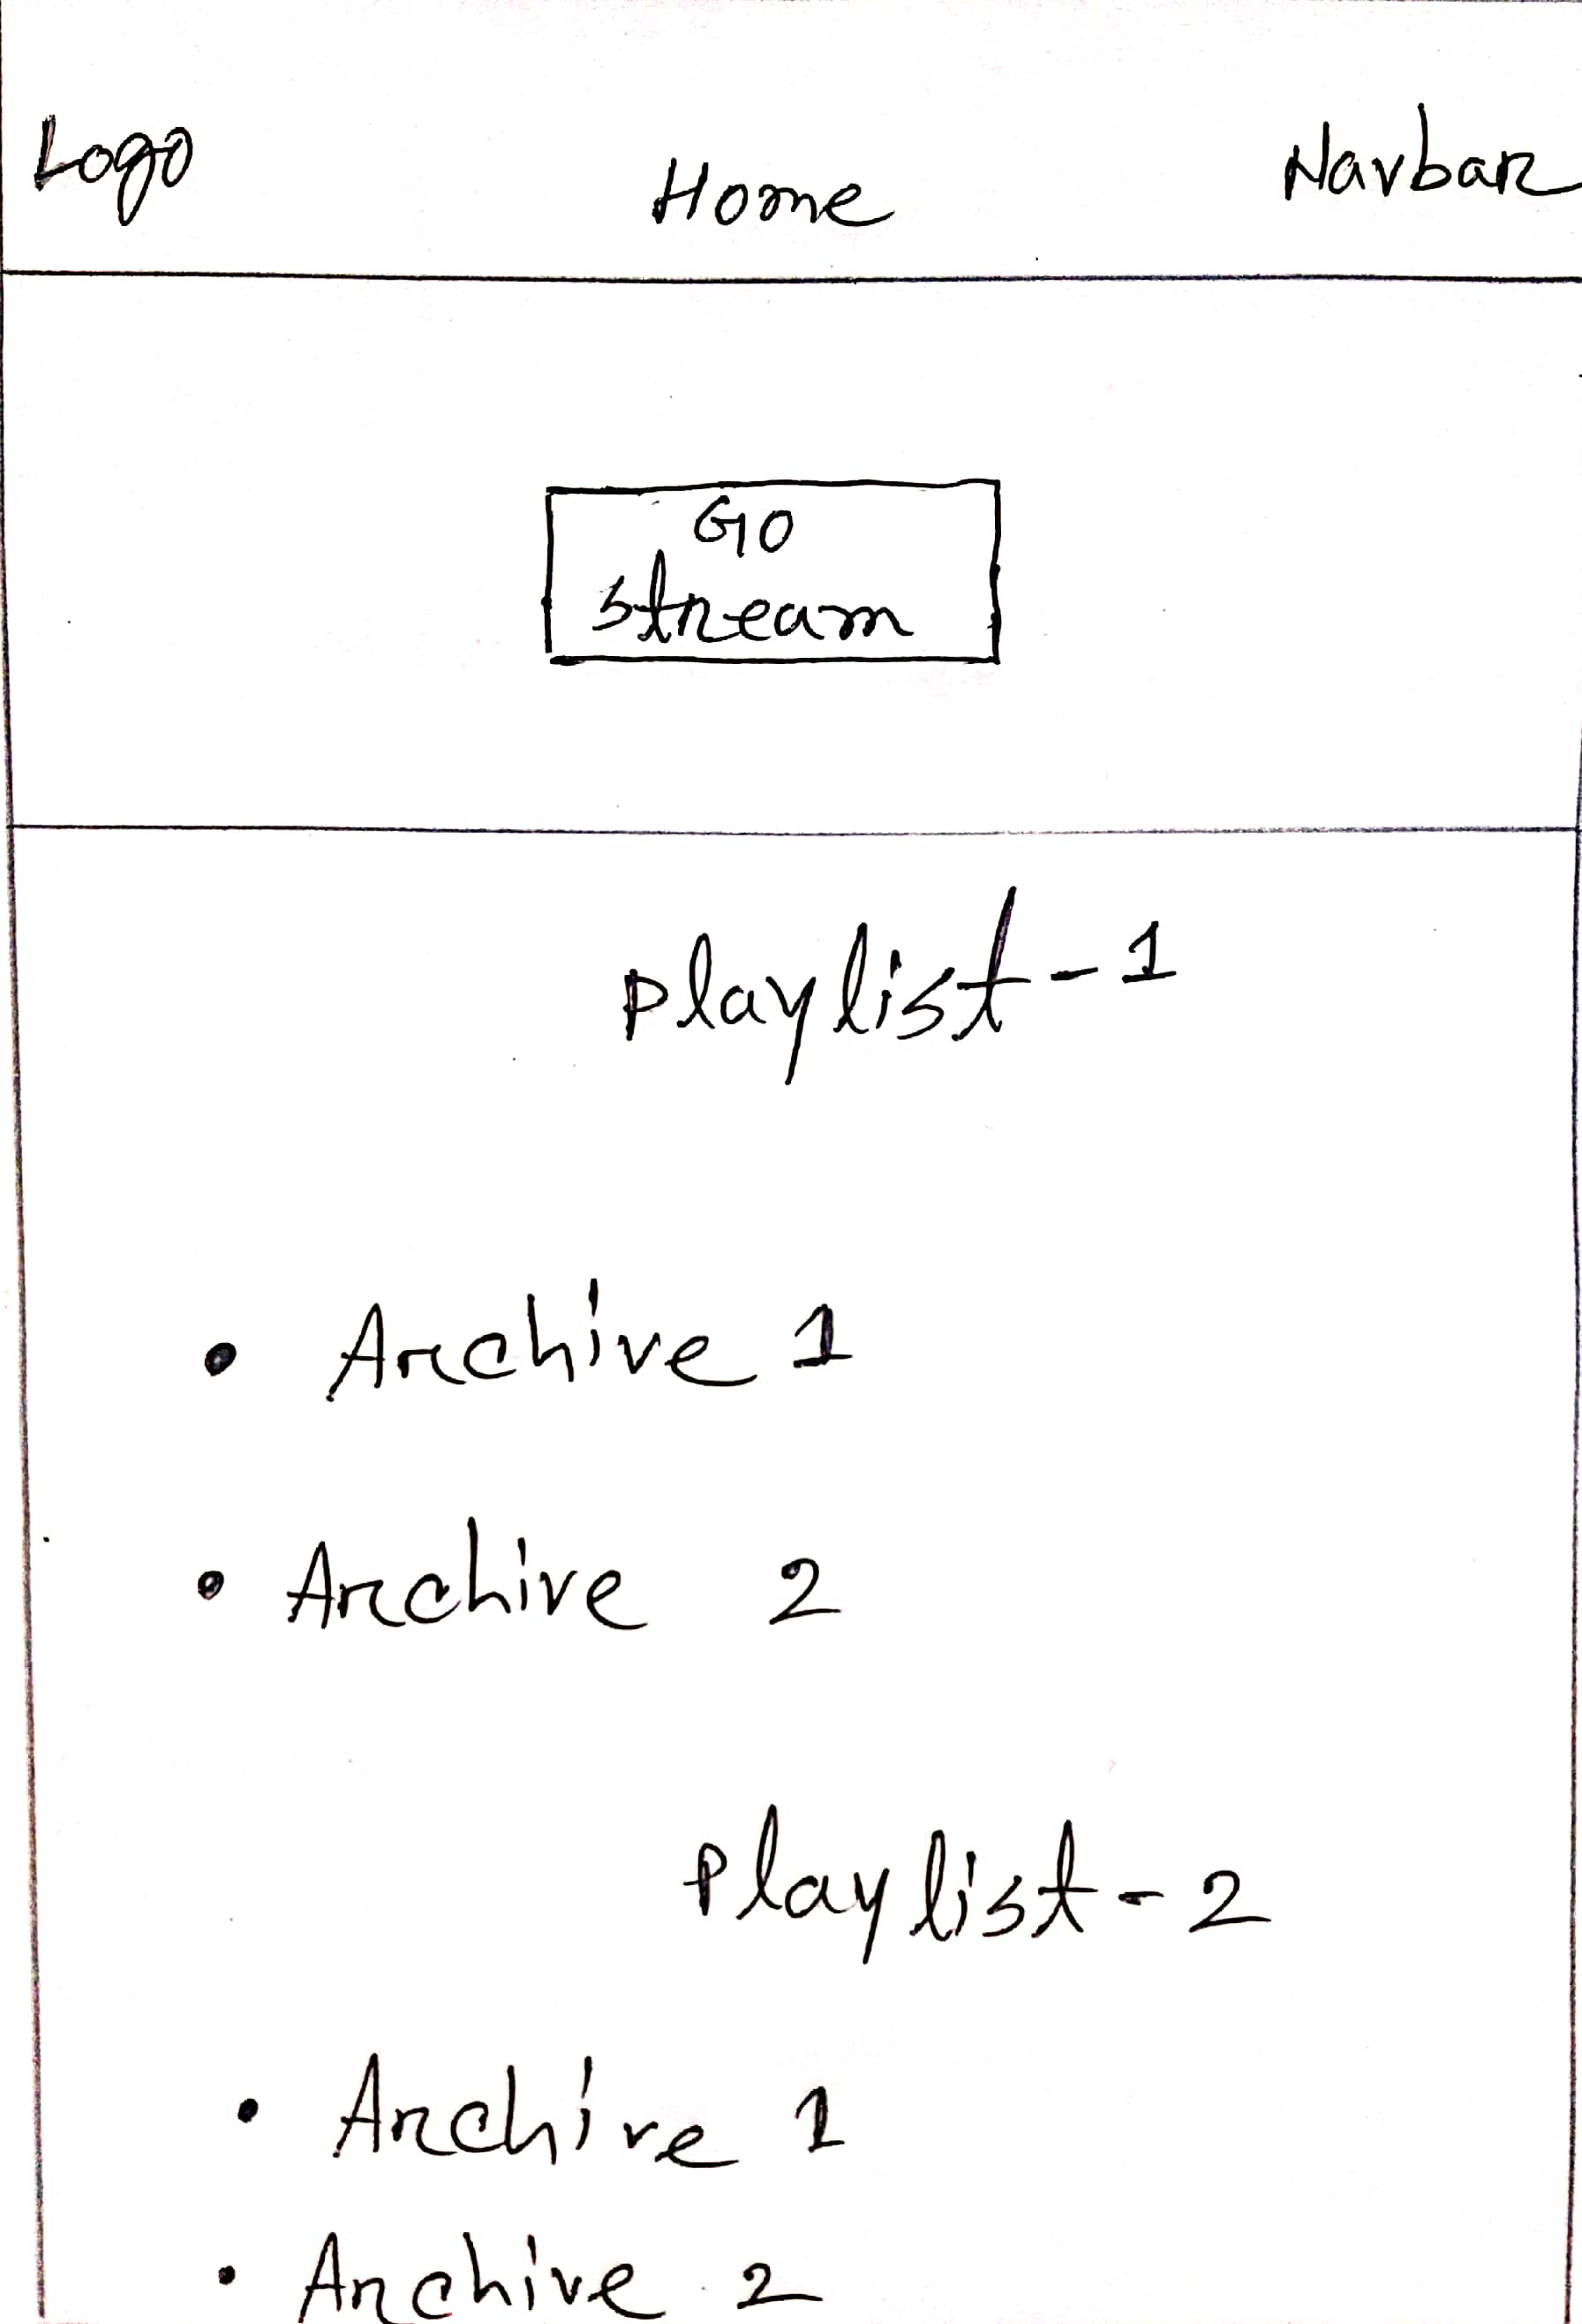 Logo Home Navbar
Go
stream
Playlist-1
• Archive 1
• Archive 2
Playlist-2
• Archive 1
• Archive 2